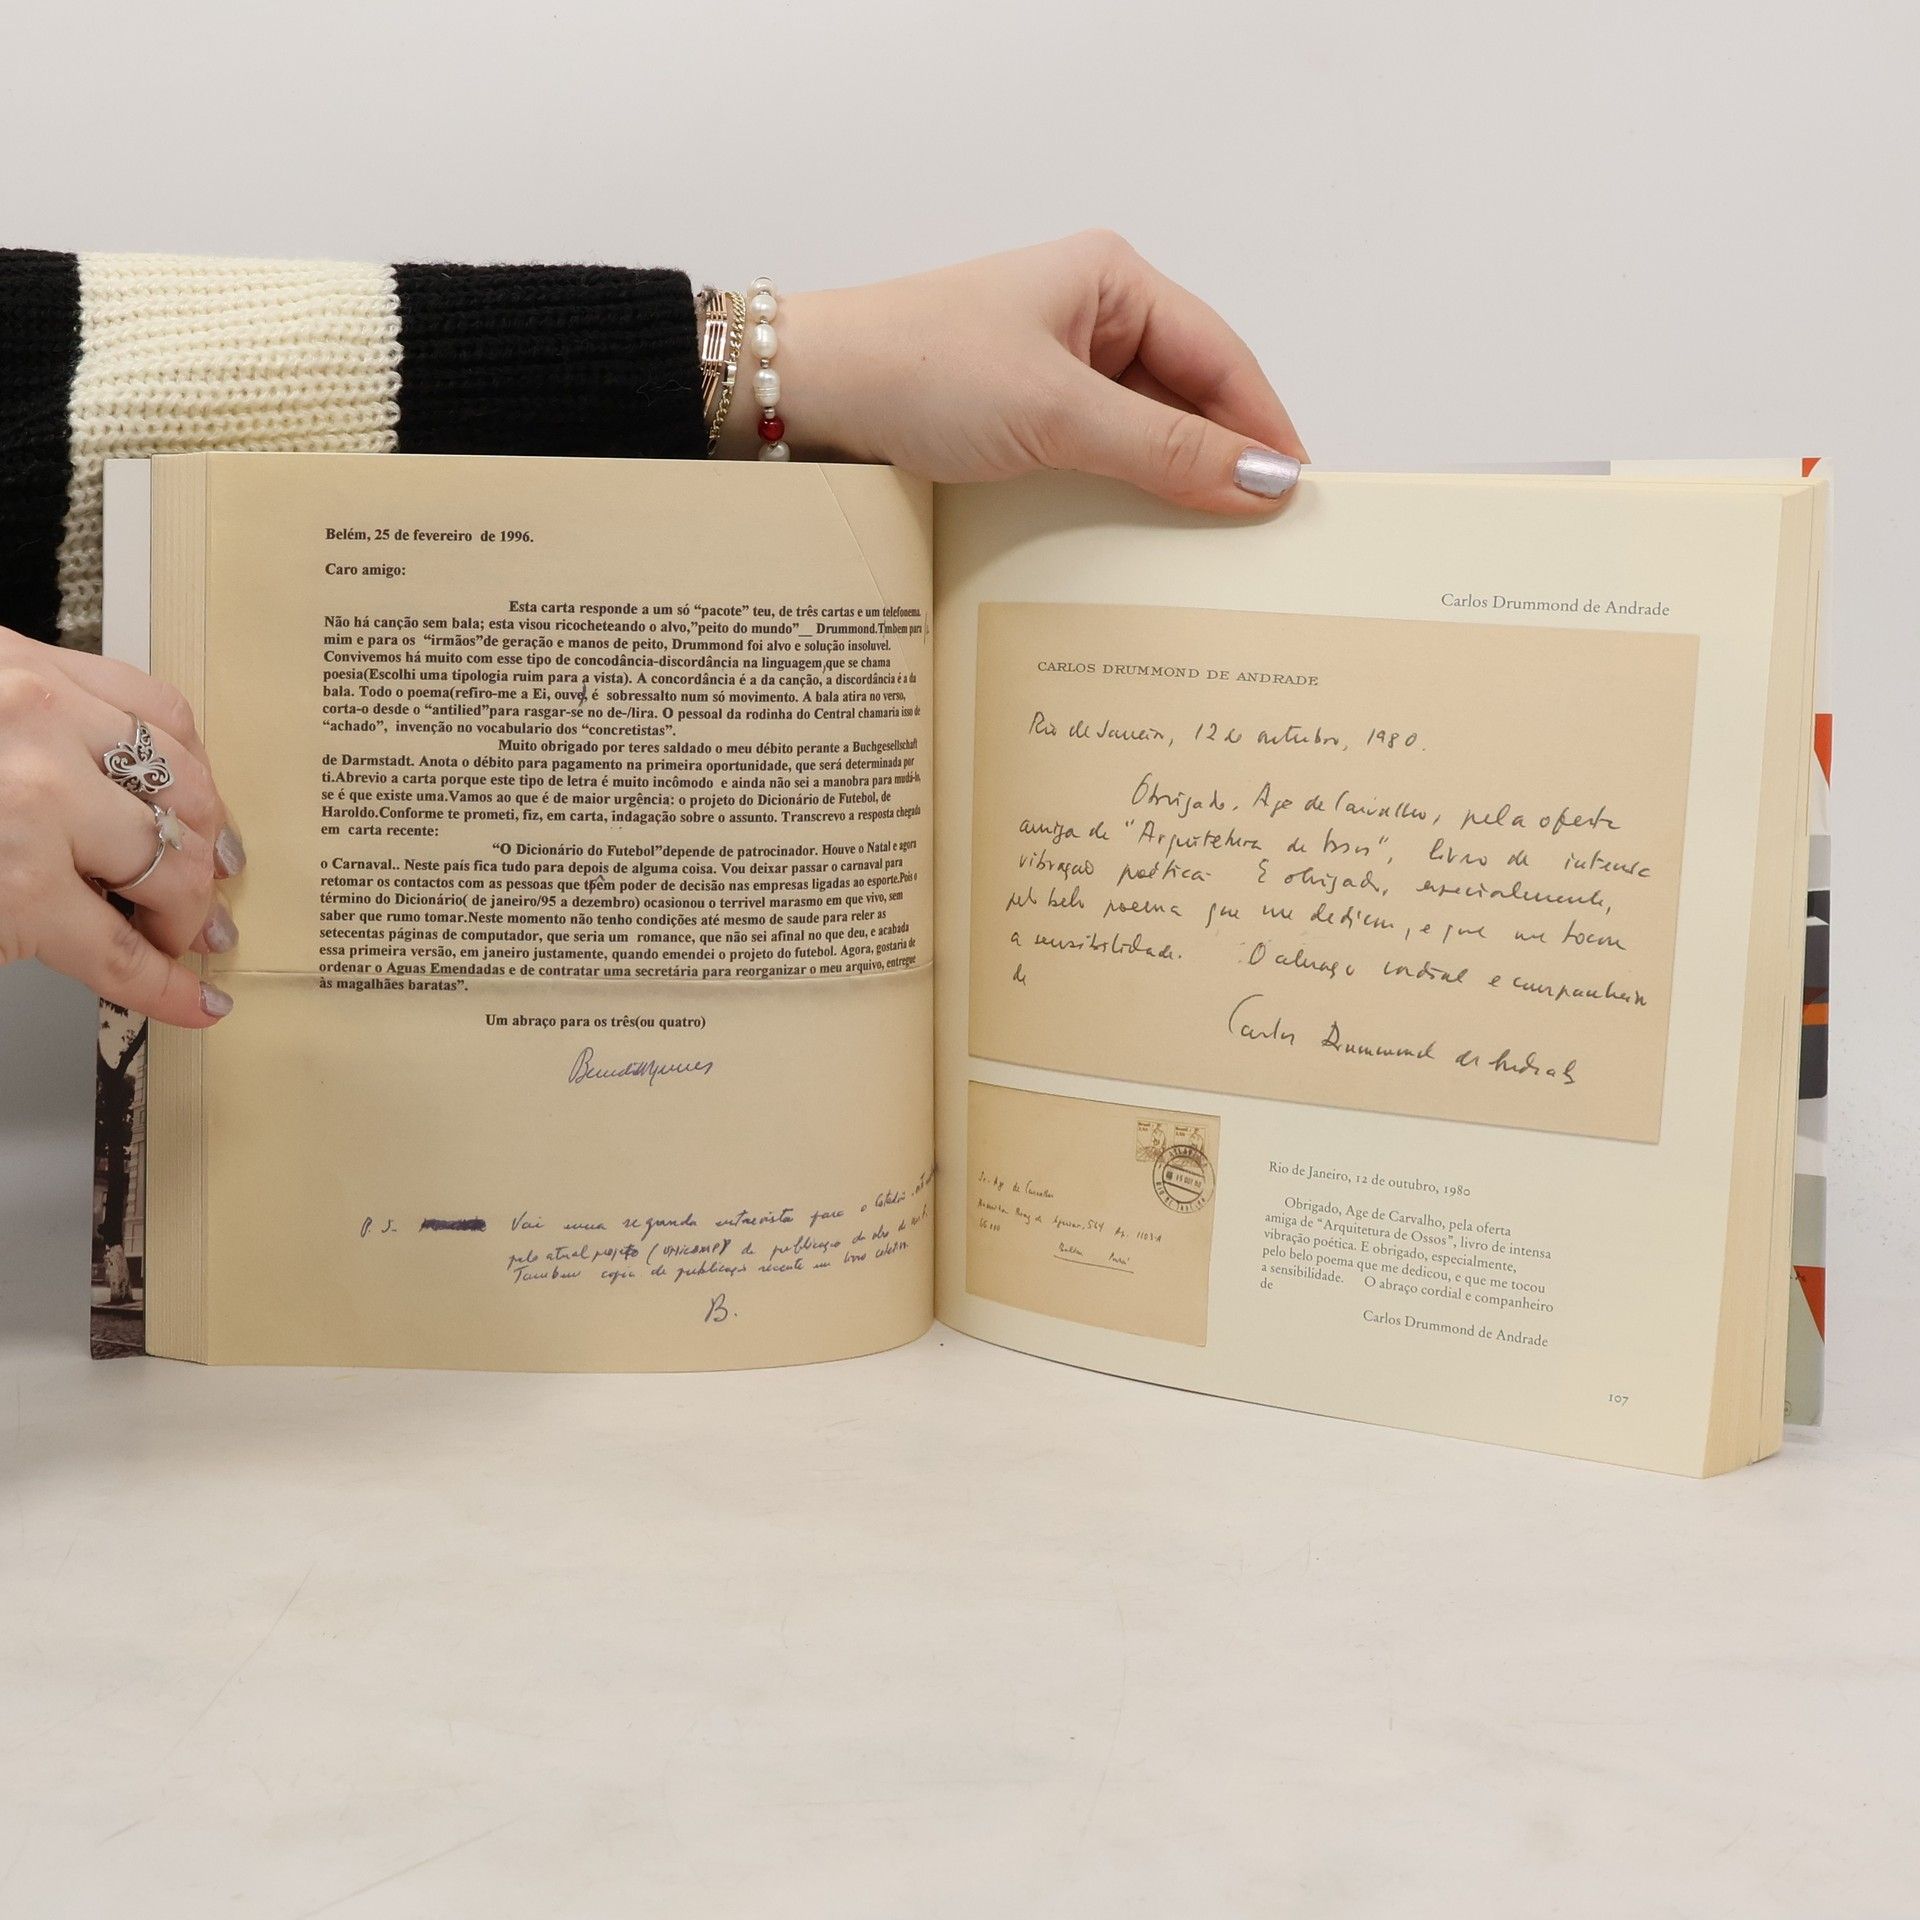 Belém, 25 de fevereiro de 1996.
Caro amigo:
Esta carta responde a um só “pacote” teu, de três cartas e um telefonema.
Não há canção sem bala; esta visou ricocheteando o alvo,”peito do mundo”__ Drummond.Tmbem para
mim e para os “irmãos”de geração e manos de peito, Drummond foi alvo e solução insoluvel.
Convivemos há muito com esse tipo de concodância-discordância na linguagem,que se chama
poesia(Escolhi uma tipologia ruim para a vista). A concordância é a da canção, a discordância é a da
bala. Todo o poema(refiro-me a Ei, ouve, é sobressalto num só movimento. A bala atira no verso,
corta-o desde o “antilied”para rasgar-se no de-/lira. O pessoal da rodinha do Central chamaria isso de
“achado”, invenção no vocabulario dos “concretistas”.
Muito obrigado por teres saldado o meu débito perante a Buchgesellschaft
de Darmstadt. Anota o débito para pagamento na primeira oportunidade, que será determinada por
ti.Abrevio a carta porque este tipo de letra é muito incômodo e ainda não sei a manobra para mudá-lo,
se é que existe uma.Vamos ao que é de maior urgência: o projeto do Dicionário de Futebol, de
Haroldo.Conforme te prometi, fiz, em carta, indagação sobre o assunto. Transcrevo a resposta chegada
em carta recente:
“O Dicionário do Futebol”depende de patrocinador. Houve o Natal e agora
o Carnaval.. Neste país fica tudo para depois de alguma coisa. Vou deixar passar o carnaval para
retomar os contactos com as pessoas que tpêm poder de decisão nas empresas ligadas ao esporte.Pois o
término do Dicionário( de janeiro/95 a dezembro) ocasionou o terrivel marasmo em que vivo, sem
saber que rumo tomar.Neste momento não tenho condições até mesmo de saude para reler as
setecentas páginas de computador, que seria um romance, que não sei afinal no que deu, e acabada
essa primeira versão, em janeiro justamente, quando emendei o projeto do futebol. Agora, gostaria de
ordenar o Aguas Emendadas e de contratar uma secretária para reorganizar o meu arquivo, entregue
às magalhães baratas”.
Um abraço para os três(ou quatro)
P. S. Vai uma segunda entrevista para o
pelo atual projeto (UNICAMP) de publicação da
Tambem copia de publicação recente em livro coletivo.
B.
Carlos Drummond de Andrade
CARLOS DRUMMOND DE ANDRADE
Rio de Janeiro, 12 de outubro, 1980.
Obrigado, Age de Carvalho, pela oferta
amiga de “Arquitetura de Ossos”, livro de intensa
vibração poética. E obrigado, especialmente,
pelo belo poema que me dedicou, e que me tocou
a sensibilidade. O abraço cordial e companheiro
de
Carlos Drummond de Andrade
Sr. Age de Carvalho
1103-A
66.000
Belém Pará
Rio de Janeiro, 12 de outubro, 1980
Obrigado, Age de Carvalho, pela oferta
amiga de “Arquitetura de Ossos”, livro de intensa
vibração poética. E obrigado, especialmente,
pelo belo poema que me dedicou, e que me tocou
a sensibilidade. O abraço cordial e companheiro
de
Carlos Drummond de Andrade
107